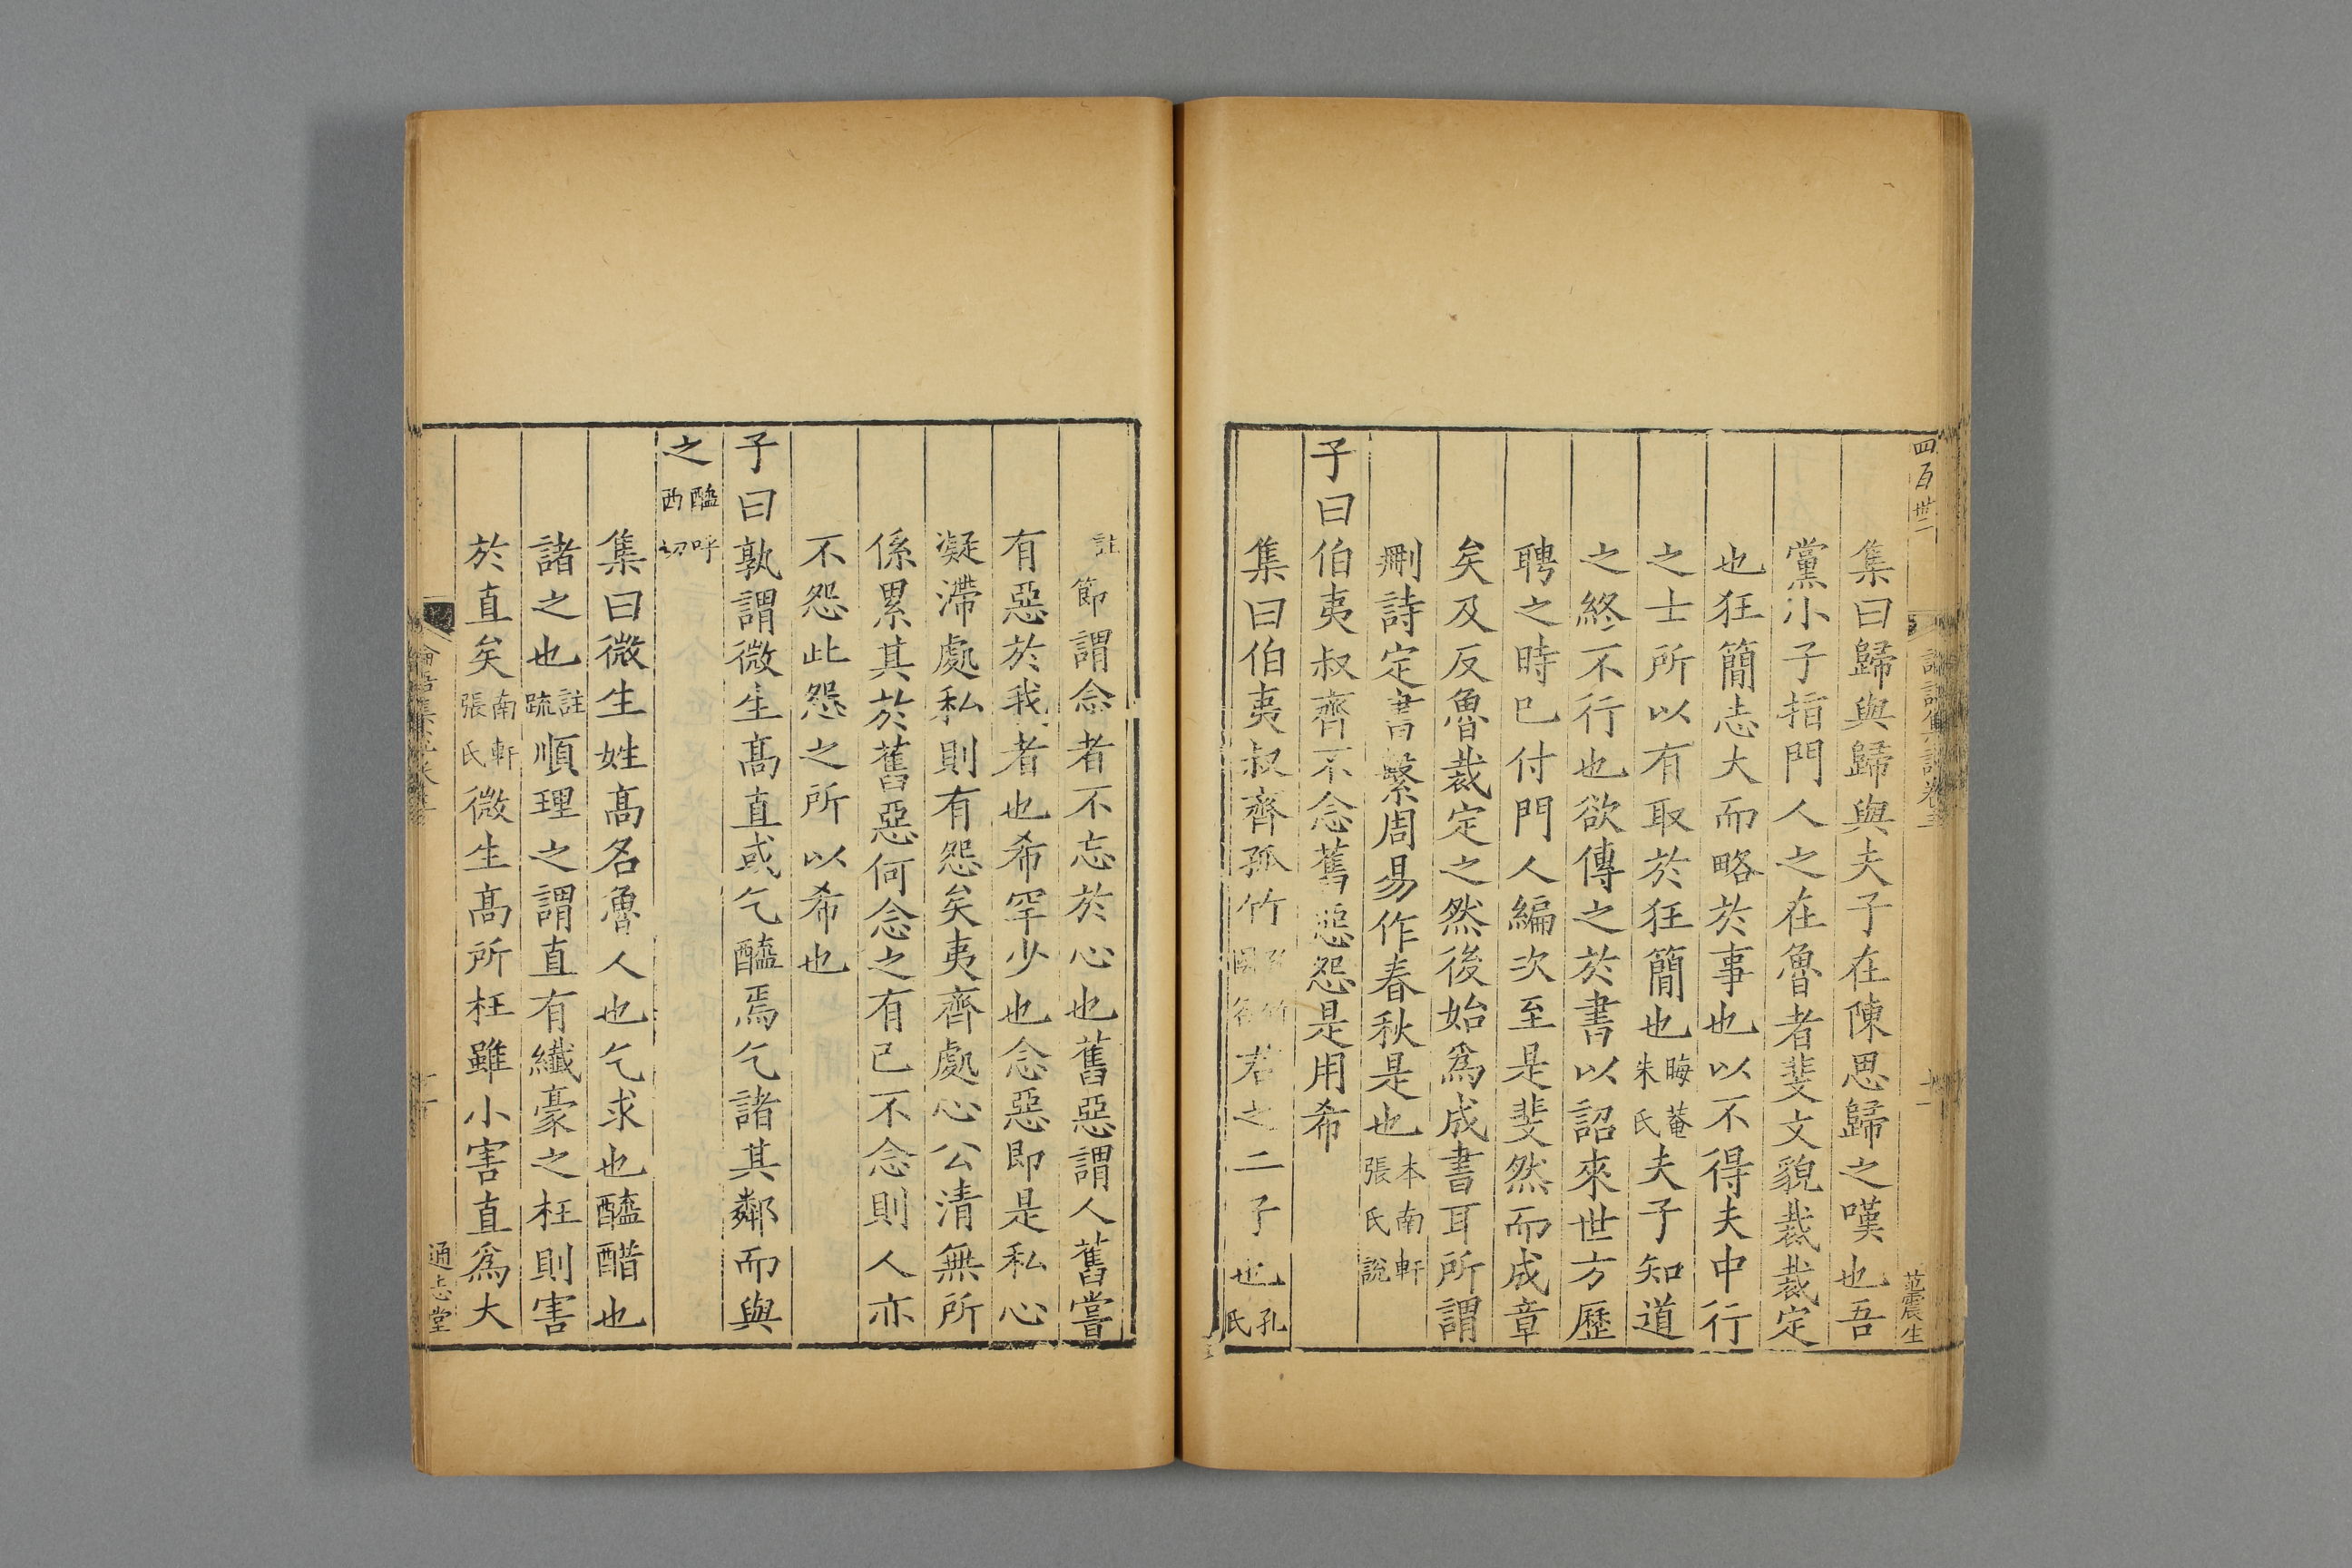 四百卅二
范震生
集曰歸與歸與夫子在陳思歸之嘆也吾
黨小子指門人之在魯者斐文貌裁裁定
也狂簡志大而略於事也以不得夫中行
之士所以有取於狂簡也晦菴朱氏夫子知道
之終不行也欲傳之於書以詔來世方歷
聘之時已付門人編次至是斐然而成章
矣及反魯裁定之然後始爲成書耳所謂
刪詩定書繫周易作春秋是也本南軒張氏說
子曰伯夷叔齊不念舊惡怨是用希
集曰伯夷叔齊孤竹君之二子也孔氏
註節謂念者不忘於心也舊惡謂人舊嘗
有惡於我者也希罕少也念惡即是私心
凝滯處私則有怨矣夷齊處心公清無所
係累其於舊惡何念之有己不念則人亦
不怨此怨之所以希也
子曰孰謂微生高直或乞醯焉乞諸其鄰而與
之醯呼西切
集曰微生姓高名魯人也乞求也醯醋也
諸之也註疏順理之謂直有纖豪之枉則害
於直矣南軒張氏微生高所枉雖小害直爲大
論語集說卷三
通志堂